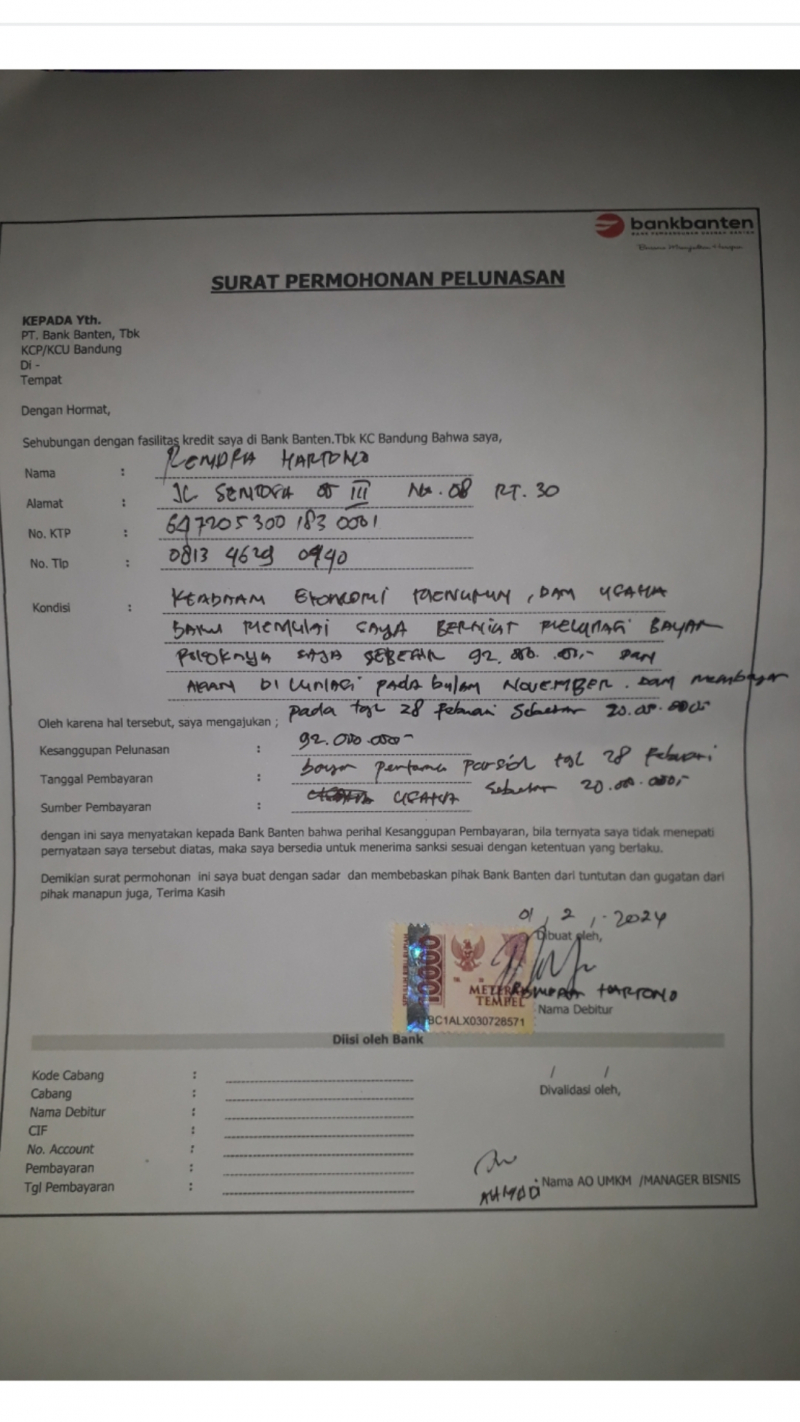 bankbanten
SURAT PERMOHONAN PELUNASAN
KEPADA Yth.
PT. Bank Banten, Tbk
KCP/KCU Bandung
Di -
Tempat
Dengan Hormat,
Sehubungan dengan fasilitas kredit saya di Bank Banten.Tbk KC Bandung Bahwa saya,
Nama : RENDRA HARTONO
Alamat : JL SENTOSA III No. 08 RT. 30
No. KTP : 647205300 183 0001
No. Tlp : 0813 4629 0940
Kondisi : KEADAAN EKONOMI MENURUN, DAN USAHA
BARU MEMULAI SAYA BERNIAT MELUNASI BAYAR
POKOKNYA SAJA SEBESAR 92.000.000,- DAN
AKAN DI LUNASI PADA bulan NOVEMBER. DAN membayar
pada tgl 28 Februari Sebesar 20.00.0000-
Oleh karena hal tersebut, saya mengajukan ;
Kesanggupan Pelunasan : 92.000.000-
Tanggal Pembayaran : bayar pertama parsial tgl 28 Februari
Sebesar 20.00.000,-
Sumber Pembayaran : USAHA
dengan ini saya menyatakan kepada Bank Banten bahwa perihal Kesanggupan Pembayaran, bila ternyata saya tidak menepati
pernyataan saya tersebut diatas, maka saya bersedia untuk menerima sanksi sesuai dengan ketentuan yang berlaku.
Demikian surat permohonan ini saya buat dengan sadar dan membebaskan pihak Bank Banten dari tuntutan dan gugatan dari
pihak manapun juga, Terima Kasih
01, 2, - 2024
Dibuat oleh,
10000
METERAI
TEMPEL
BC1ALX030728571
RENDRA HARTONO
Nama Debitur
Diisi oleh Bank
Kode Cabang :
Cabang :
Nama Debitur :
CIF :
No. Account :
Pembayaran :
Tgl Pembayaran :
/ /
Divalidasi oleh,
AHMAD
Nama AO UMKM /MANAGER BISNIS